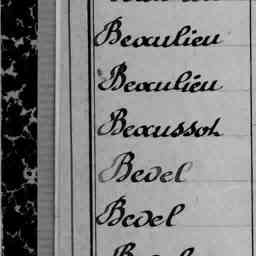 Beaulieu
Beaulieu
Beaussot
Bevel
Bevel